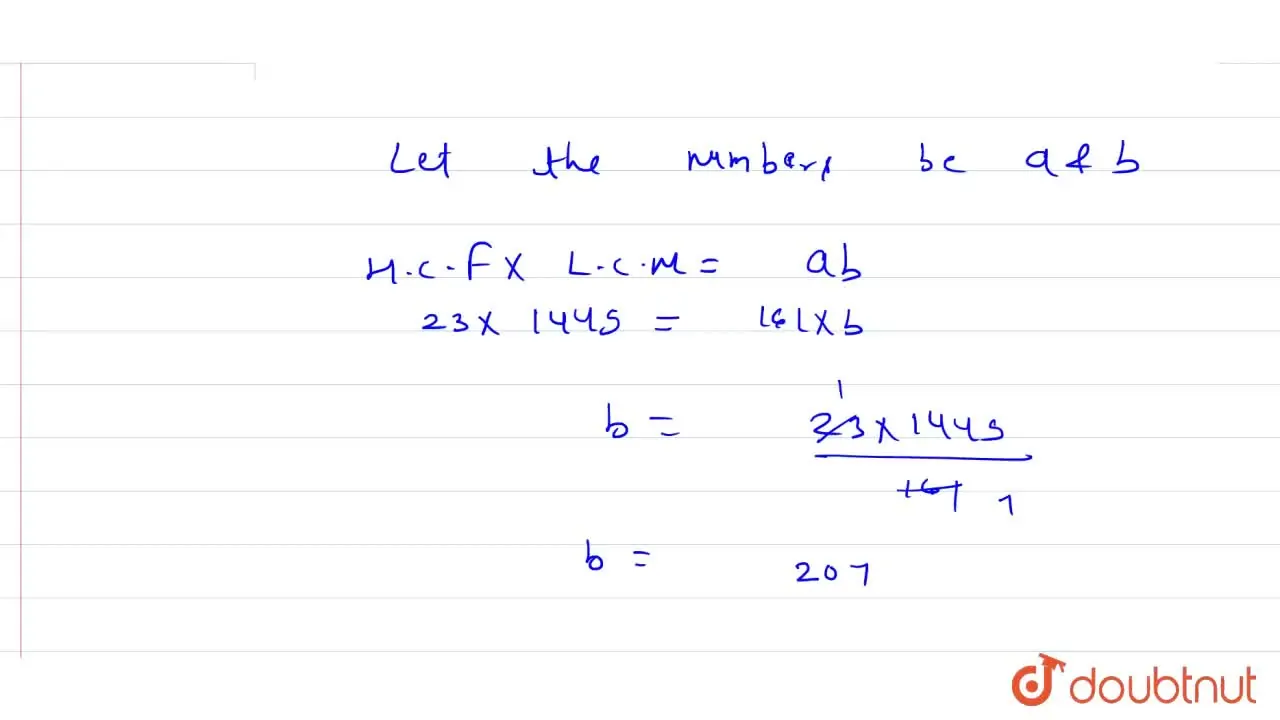 Let the numbers be a & b
H.C.F X L.C.M = ab
23 X 1445 = 161 X b
1
b = 23 X 1445
161 7
b = 207
doubtnut